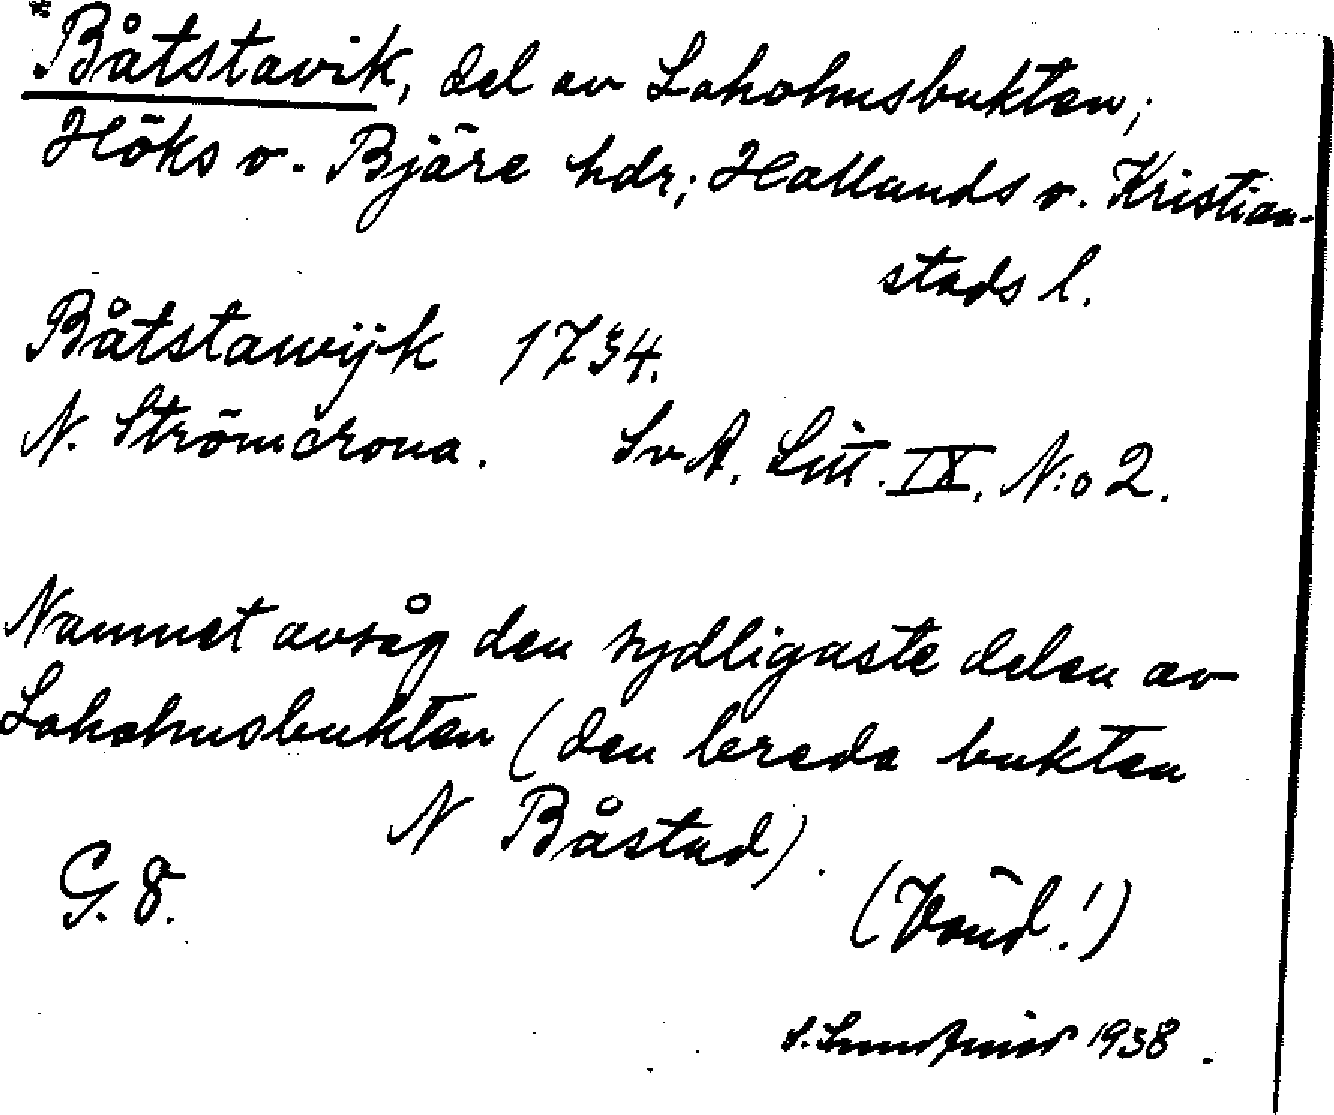 *Båtstavik, del av Laholmsbukten;
Höks o. Bjäre hdr; Hallands o. Kristian-
stads l.
Båtstawijk 1734.
N. Strömcrona. SvA. Litt. IX, N:o 2.
Namnet avsåg den sydligaste delen av
Laholmsbukten (den breda bukten
N Båstad).
G. 8.
(Vänd!)
1938.